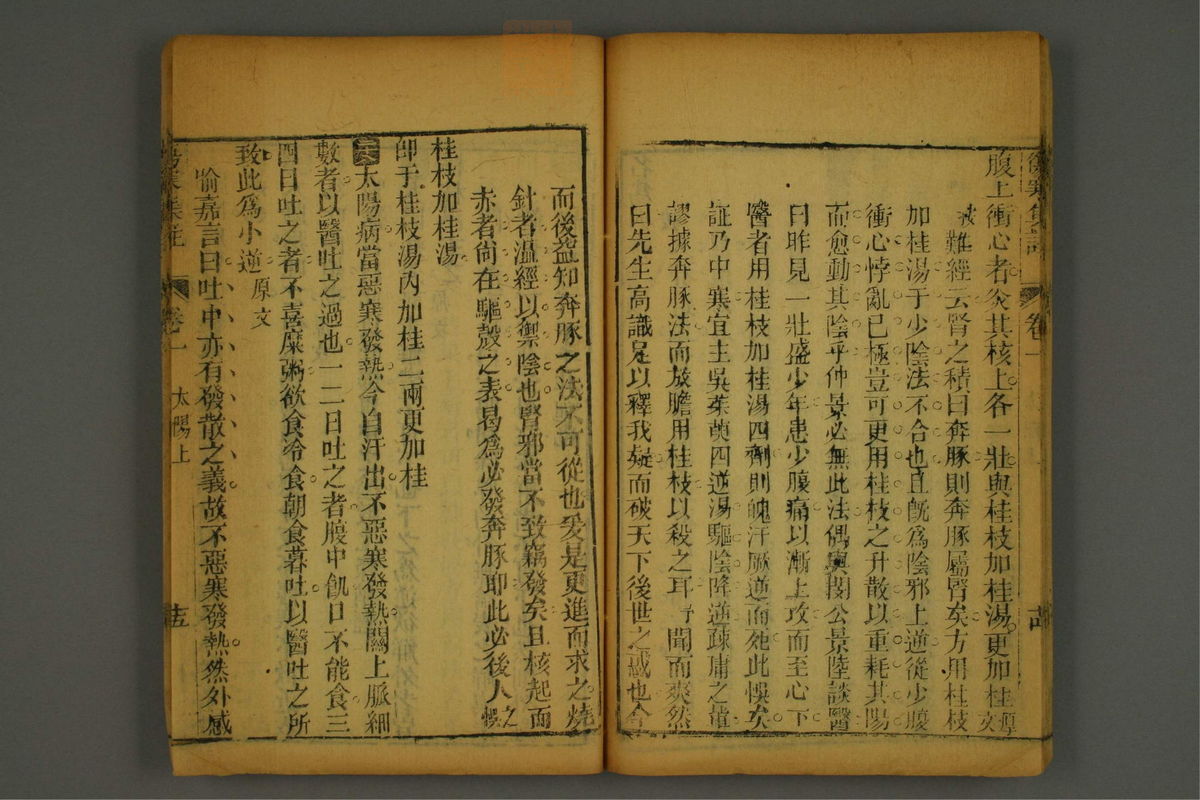 腹上衝心者灸其核上各一壯與桂枝加桂湯更加桂原文
難經云腎之積曰奔豚則奔豚屬腎矣方用桂枝
加桂湯于少陰法不合也且旣爲陰邪上逆從少腹
衝心悸亂已極豈可更用桂枝之升散以重耗其陽
而愈動其陰乎仲景必無此法偶與閔公景陸談醫
曰昨見一壯盛少年患少腹痛以漸上攻而至心下
醫者用桂枝加桂湯四劑則魄汗厥逆而死此悞矣
証乃中寒宜主吳茱萸四逆湯驅陰降逆疎庸之輩
謬據奔豚法而放膽用桂枝以殺之耳予聞而爽然
曰先生高識足以釋我疑而破天下後世之惑也今
卷一
而後益知奔豚之法不可從也爰是更進而求之燒
針者溫經以禦陰也腎邪當不致竊發矣且核起而
赤者尙在驅殼之表曷爲必發奔豚耶此必後人之悞
桂枝加桂湯
卽于桂枝湯內加桂二兩更加桂
太陽病當惡寒發熱今自汗出不惡寒發熱關上脈細
數者以醫吐之過也一二日吐之者腹中飢口不能食三
四日吐之者不喜糜粥欲食冷食朝食暮吐以醫吐之所
致此爲小逆原文
喻嘉言曰吐中亦有發散之義故不惡寒發熱然外感
卷一 太陽上